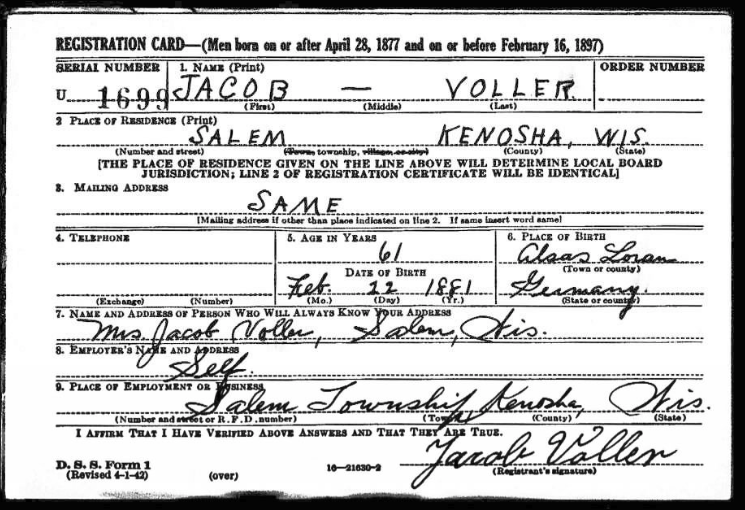 REGISTRATION CARD—(Men born on or after April 28, 1877 and on or before February 16, 1897)
SERIAL NUMBER 1. NAME (Print) ORDER NUMBER
U 1699 JACOB — VOLLER
(First) (Middle) (Last)
2 PLACE OF RESIDENCE (Print)
SALEM KENOSHA, WIS.
(Number and street) (Town, township, village, or city) (County) (State)
[THE PLACE OF RESIDENCE GIVEN ON THE LINE ABOVE WILL DETERMINE LOCAL BOARD
JURISDICTION; LINE 2 OF REGISTRATION CERTIFICATE WILL BE IDENTICAL]
3. MAILING ADDRESS
SAME
[Mailing address if other than place indicated on line 2. If same insert word same]
4. TELEPHONE 5. AGE IN YEARS 6. PLACE OF BIRTH
61 Alsas Loran
DATE OF BIRTH (Town or county)
Feb. 22 1881 Germany.
(Exchange) (Number) (Mo.) (Day) (Yr.) (State or country)
7. NAME AND ADDRESS OF PERSON WHO WILL ALWAYS KNOW YOUR ADDRESS
Mrs Jacob Voller, Salem, Wis.
8. EMPLOYER'S NAME AND ADDRESS
Self.
9. PLACE OF EMPLOYMENT OR BUSINESS
Salem Township, Kenosha, Wis.
(Number and street or R. F. D. number) (Town) (County) (State)
I AFFIRM THAT I HAVE VERIFIED ABOVE ANSWERS AND THAT THEY ARE TRUE.
Jacob Voller
D. S. S. Form 1
(Revised 4-1-42) (over) 16—21630-2 (Registrant's signature)